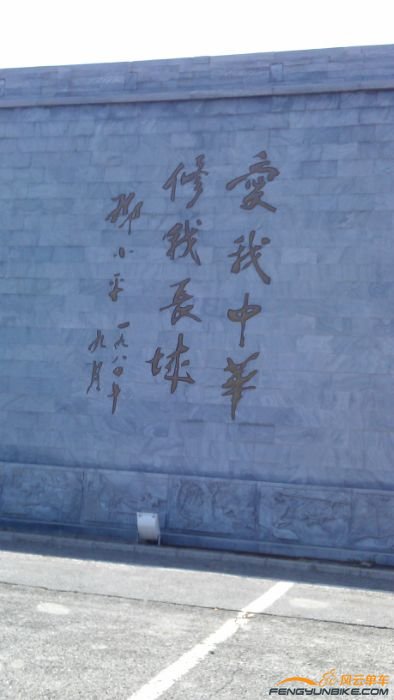 愛我中華
修我長城
鄧小平 一九八四年
九月
风云单车
FENGYUNBIKE.COM